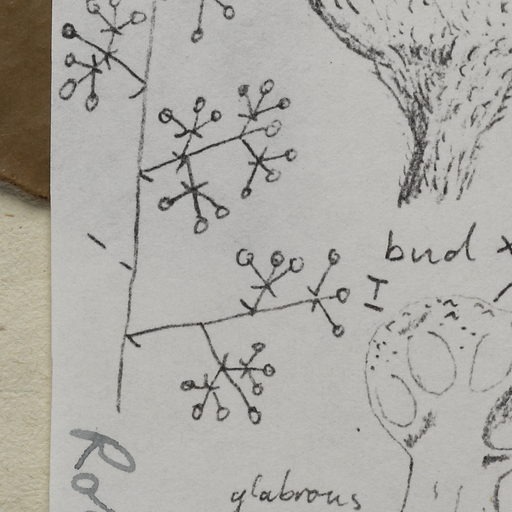 bud x
I
Ro
glabrous